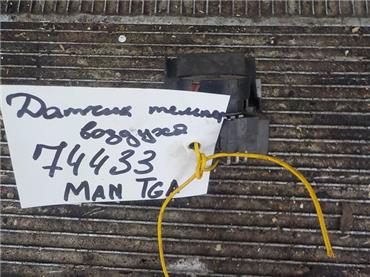 Датчик темпер
воздуха
74433
MAN TGA